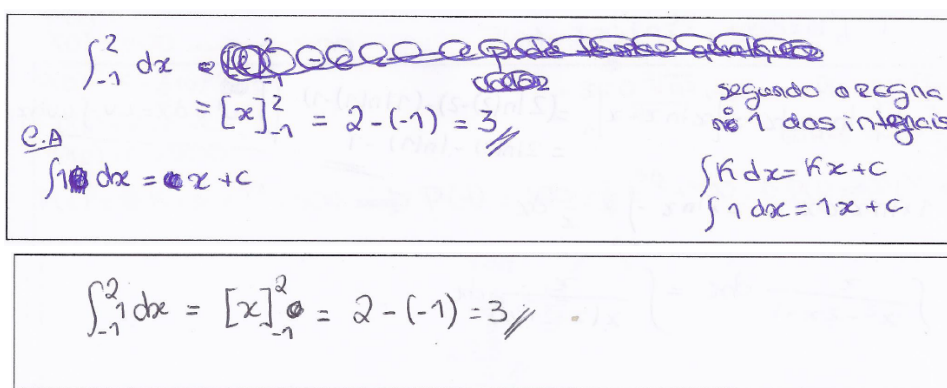 ∫₋₁² dx =
= [x]₋₁² = 2-(-1) = 3//
C.A
∫1 dx = x + c
segundo a regra
nº 1 dos integrais
∫K dx = Kx + c
∫1 dx = 1x + c
∫₋₁² 1 dx = [x]₋₁² = 2-(-1) = 3//